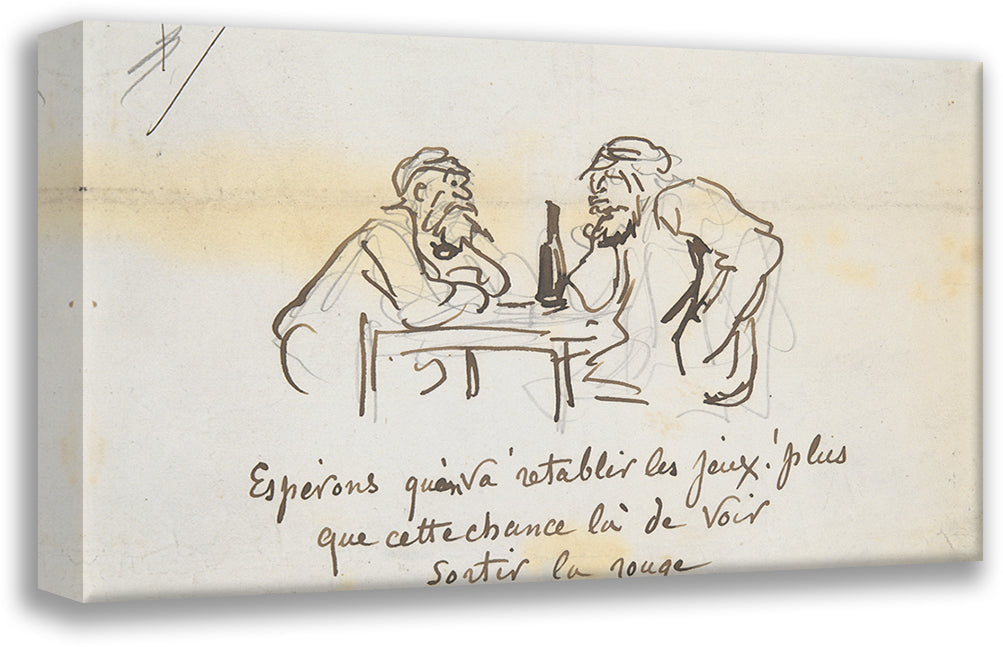 Espérons qu'on va retablir les jeux! plus
que cette chance là de voir
sortir la rouge